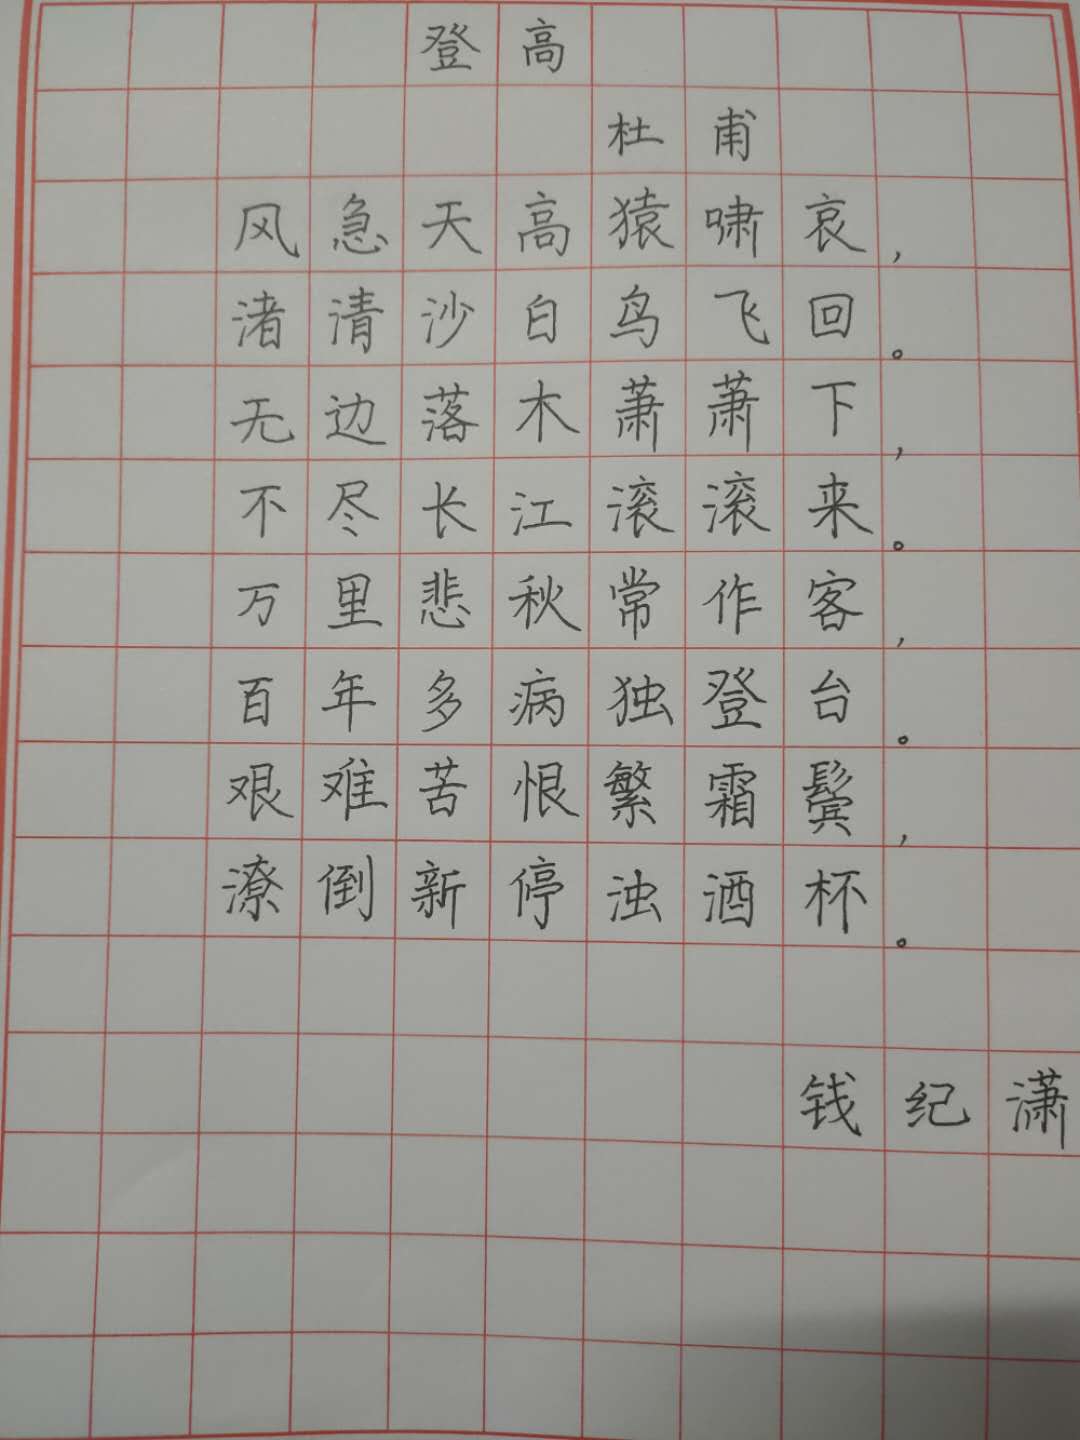 登高
杜甫
风急天高猿啸哀，
渚清沙白鸟飞回。
无边落木萧萧下，
不尽长江滚滚来。
万里悲秋常作客，
百年多病独登台。
艰难苦恨繁霜鬓，
潦倒新停浊酒杯。
钱纪潇